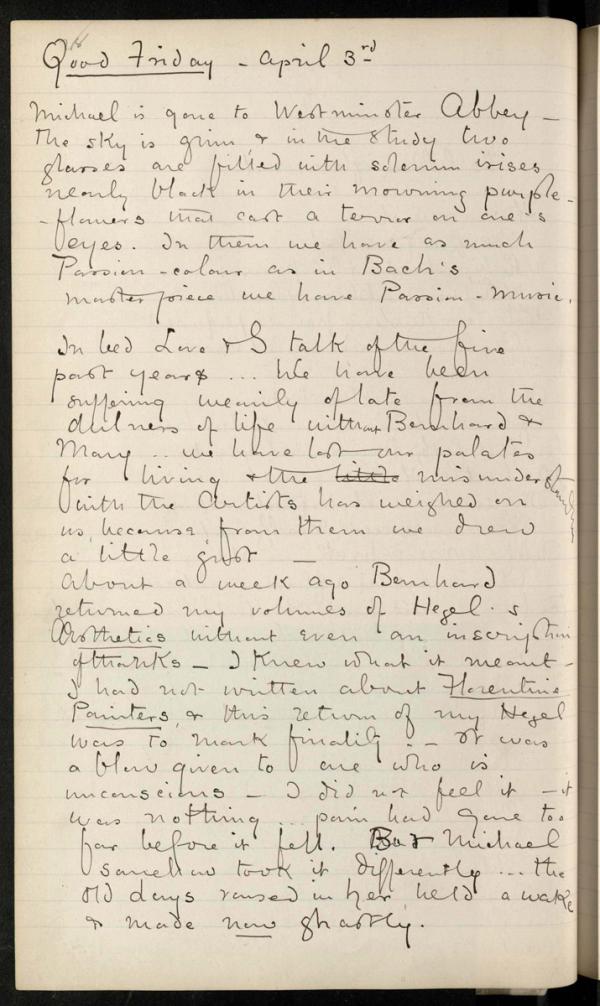 Good Friday - April 3rd
Michael is gone to Westminster Abbey -
The sky is grim, & in the Study two
glasses are filled with solemn irises
nearly black in their mourning purple -
- flowers that cast a terror on one's
eyes. In them we have as much
Passion-colour as in Bach's
masterpiece we have Passion-music.
In bed Love & I talk of the five
past years ... We have been
suffering wearily of late from the
dulness of life without Bernhard &
Mary .. we have lost our palates
for living & the little misunderstanding
with the Artists has weighed on
us, because, from them we drew
a little gust —
About a week ago Bernhard
returned my volumes of Hegel's
Aesthetics without even an inscription
of thanks - I knew what it meant -
I had not written about Florentine
Painters, & this return of my Hegel
was to mark finality. - It was
a blow given to one who is
unconscious - I did not feel it - it
was nothing ... pain had gone too
far before it fell. But Michael
somehow took it differently ... the
old days roused in her, held a wake
& made now ghastly.